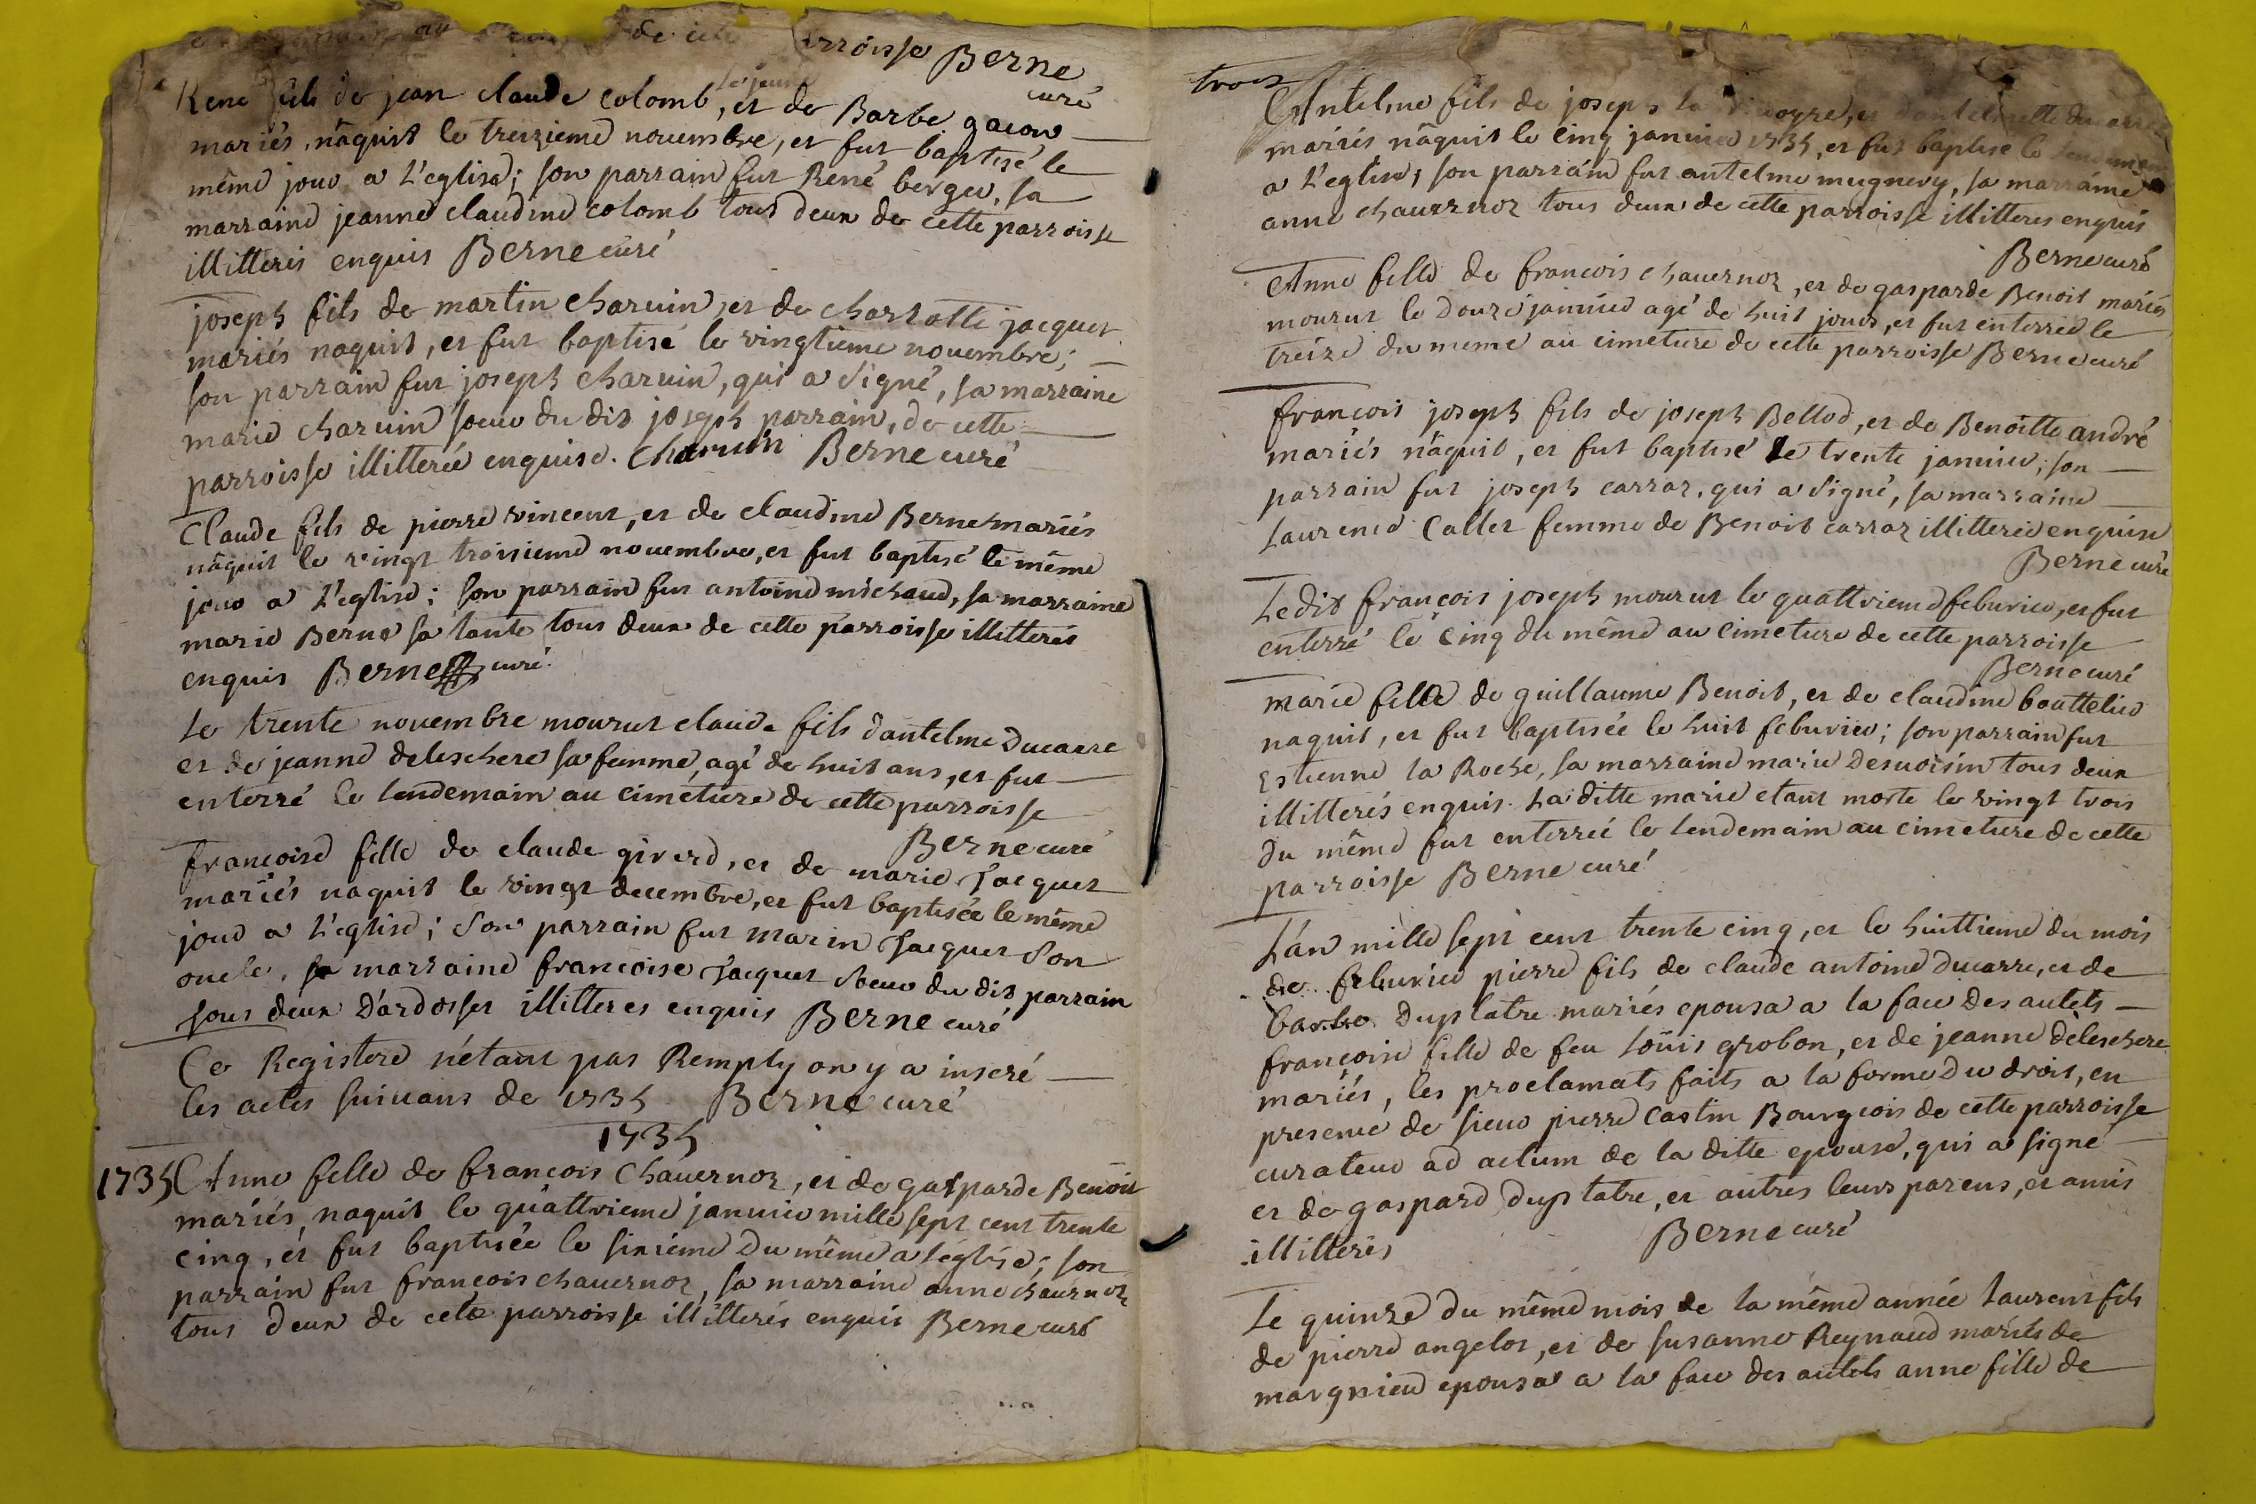 de cette parroisse Berne
curé
René fils de jean claude colomb, le jeune et de Barbe gacon
mariés, nâquit le treizieme novembre, et fut baptisé le
même jour a L'eglise; son parrain fut René berger, sa
marraine jeanne claudine colomb tous deux de cette parroisse
illitteres enquis Berne curé
joseph fils de martin charuin, et de charlotte jacquet
mariés naquit, et fut baptisé le vingtieme novembre;
son parrain fut joseph charuin, qui a signé, sa marraine
marie charuin soeur du dit joseph parrain, de cette
parroisse illitterée enquise. Charuin Berne curé
Claude fils de pierre vincent, et de claudine Berne mariés
nâquit le vingt troisieme novembre, et fut baptisé le même
jour a L'eglise; son parrain fut antoine michaud, sa marraine
marie Berne sa tante tous deux de cette parroisse illitterés
enquis Berne curé
Le trente novembre mourut claude fils d'antelme Ducarre
et de jeanne deleschere sa femme, agé de huit ans, et fut
enterré le lendemain au cimetiere de cette parroisse
Berne curé
francoise fille de claude girerd, et de marie Jacquet
mariés naquit le vingt decembre, et fut baptisée le même
jour a L'eglise; son parrain fut marin Jacquet son
oncle, sa marraine francoise Jacquet soeur du dit parrain
tous deux D'ardosset illitteres enquis Berne curé
Ce Registere n'étant pas Remply on y a inseré
les actes suivans de 1735 Berne curé
1735
1735 Anne fille de francois Chauernoz, et de gasparde Benoit
mariés, naquit le quattrieme januier mille sept cent trente
cinq, et fut baptisée le sixiéme du même a l'église; son
parrain fut françois chauernoz, sa marraine anne chauernoz
tous deux de cette parroisse illitterés enquis Berne curé
trois
Antelme fils de joseph la et d'antelmette ducarre
mariés nâquit le cinq januier 1735, et fut baptisé le lendemain
a L'eglise; son parrain fut antelme mugnery, sa marraine
anne chauernoz tous deux de cette parroisse illitteres enquis
Berne curé
Anne fille de francois chauernoz, et de gasparde Benoit mariés
mourut le Douze januier agé de huit jours, et fut enterrée le
treize du meme au cimetiere de cette parroisse Berne curé
francois joseph fils de joseph Bellod, et de Benoitte andré
mariés nâquit, et fut baptisé Le trente januier; son
parrain fut joseph carraz, qui a signé, sa marraine
Laurence Callet femme de Benoit carraz illitterée enquise
Berne curé
Ledit françois joseph mourut le quattrieme feburier, et fut
enterré le cinq du même au cimetiere de cette parroisse
Berne curé
marie fille de guillaume Benoit, et de claudine bouttelier
naquit, et fut baptisée le huit feburier; son parrain fut
Estienne la Roche, sa marraine marie Desuoisin tous deux
illitterés enquis. La ditte marie etant morte le vingt trois
Du même fut enterrée le lendemain au cimetiere de cette
parroisse Berne curé
L'an mille sept cent trente cinq, et le huittieme du mois
de feburier pierre fils de claude antoine Ducarre, et de
barbe Duplatre mariés epousa a la face des autels
francoise fille de feu Loüis grobon, et de jeanne déleschere
mariés, les proclamats faits a la forme du droit, en
presence de sieur pierre Castin Bourgeois de cette parroisse
curateur ad actum de la ditte epouse, qui a signé
et de gaspard Duplatre, et autres leurs parens, et amis
illitterés Berne curé
Le quinze du même mois de la même année Laurent fils
de pierre angelot, et de susanne Reynaud mariés de
margnieu epousa a la face des autels anne fille de